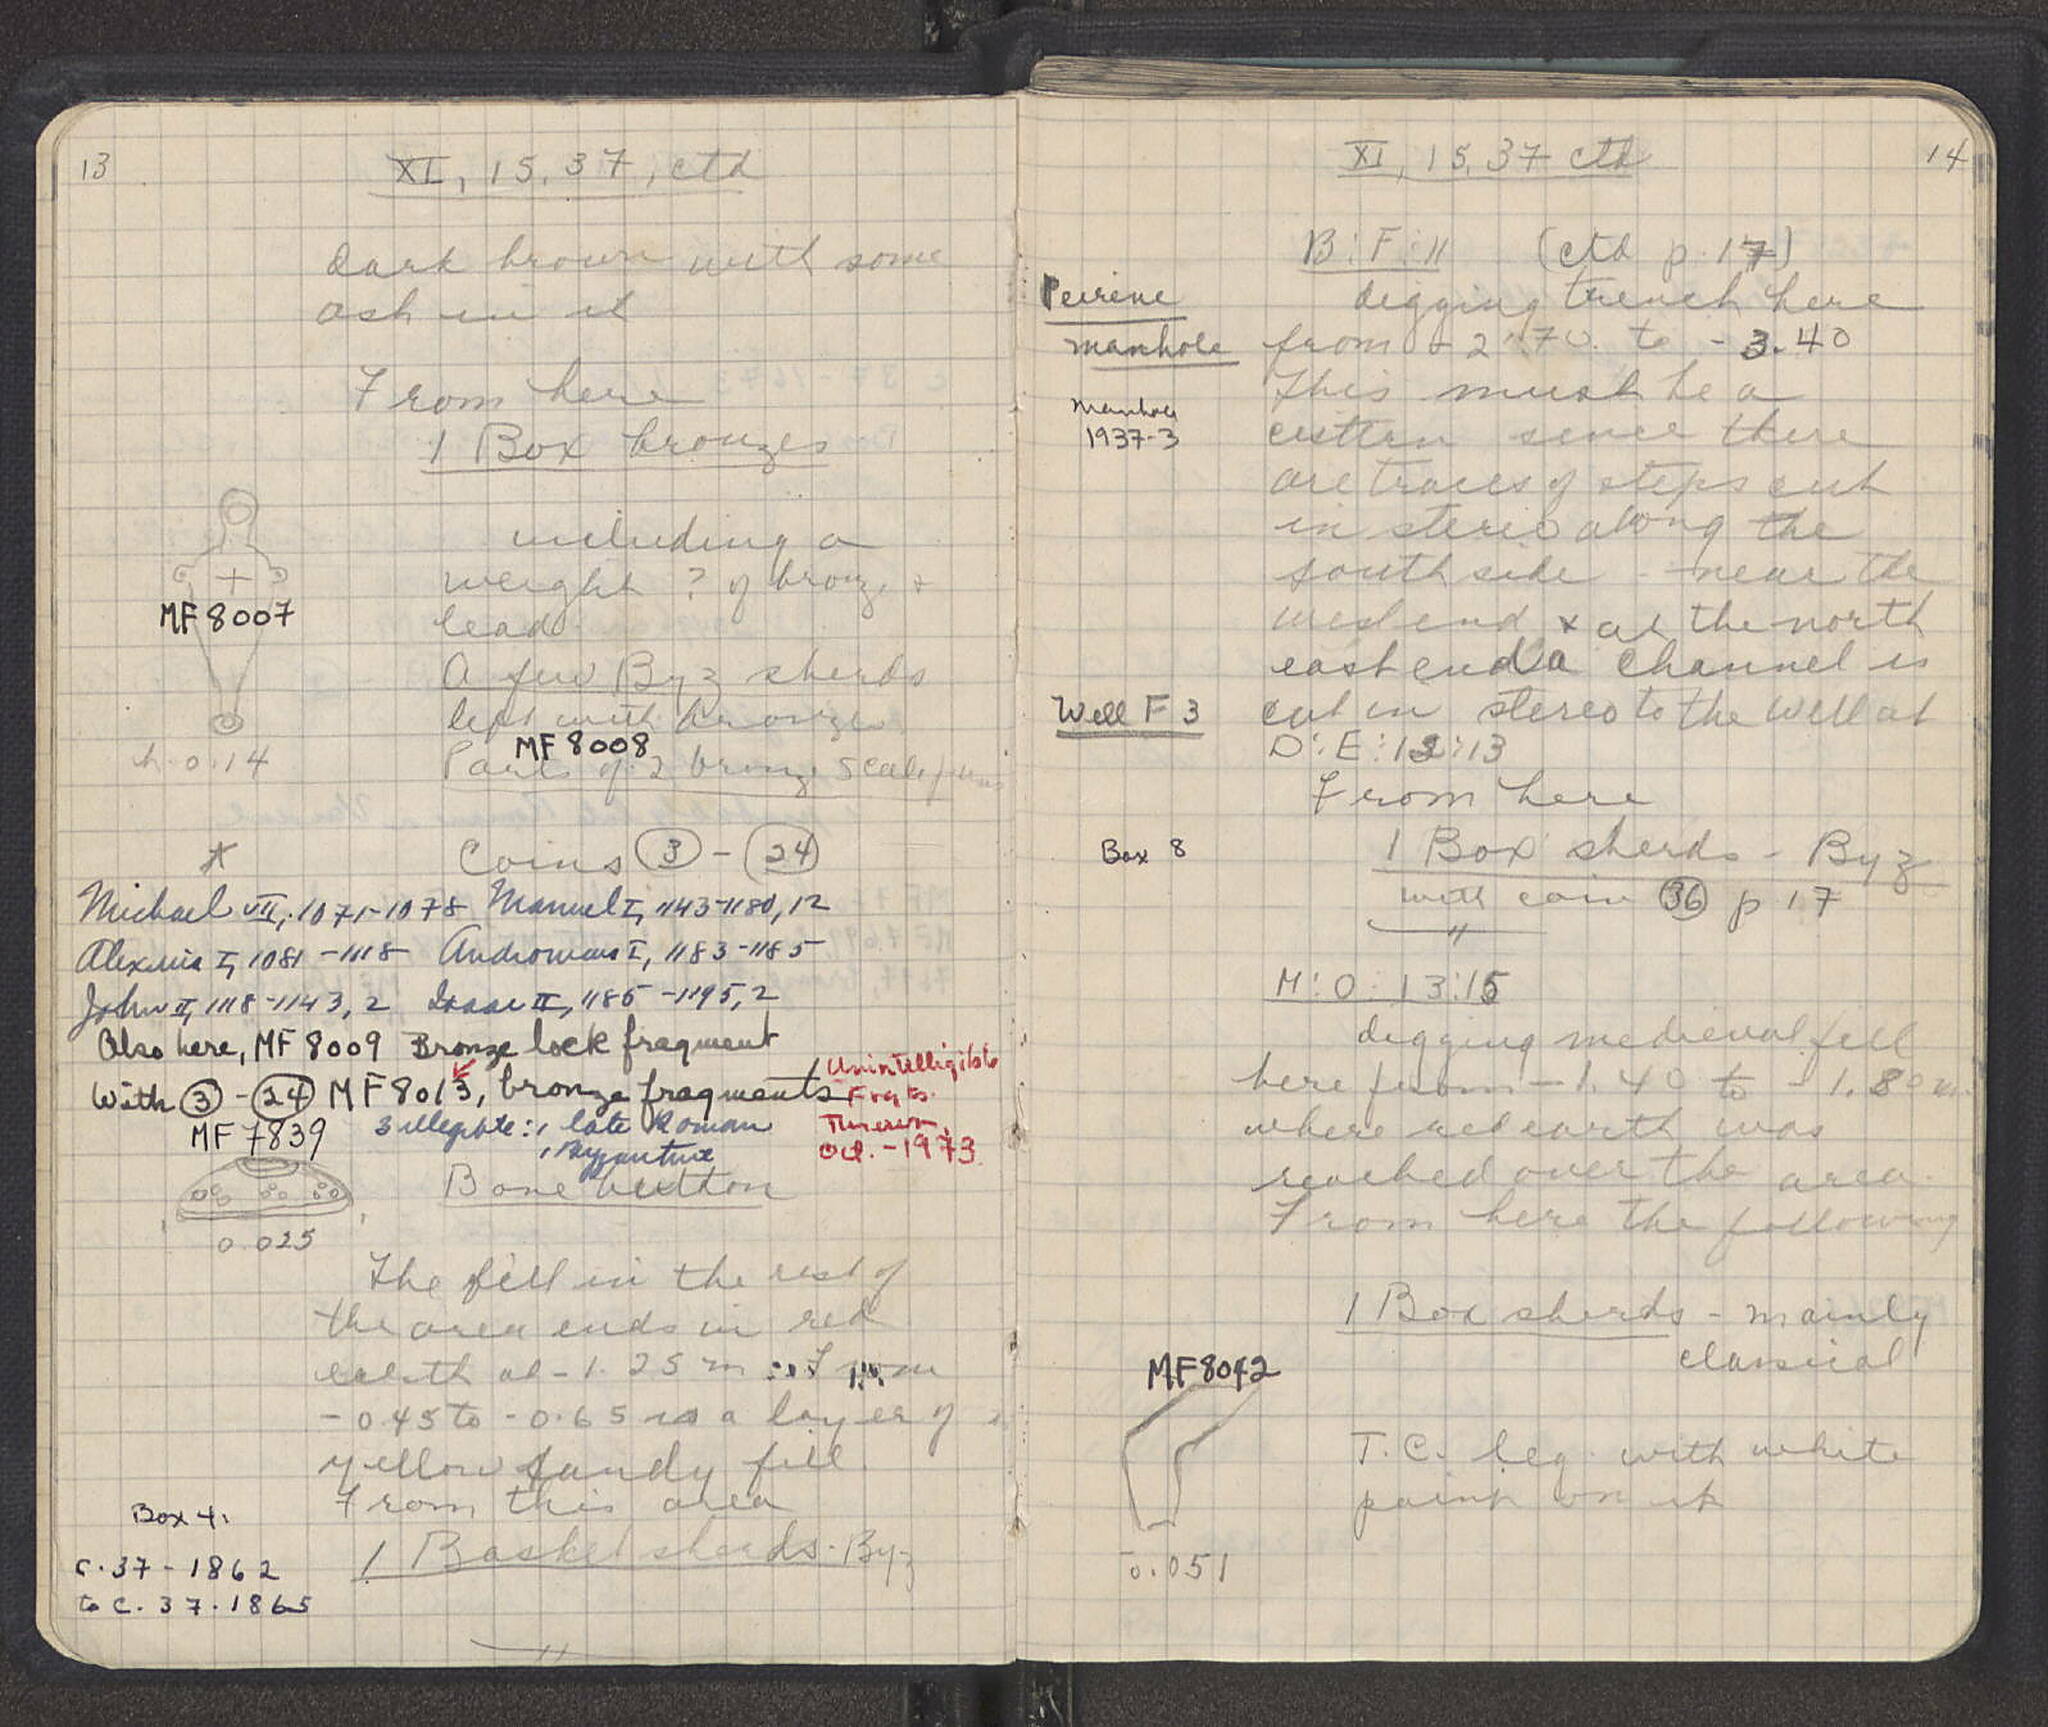 13
XI, 15, 37, ctd
dark brown with some
ash in it
From here
1 Box bronzes
including a
weight ? of bronze +
lead.
MF 8007
A few Byz sherds
left with bronze
MF 8008
Parts of 2 bronze scale pans
h. 0.14
Coins 3 - 24
Michael VII, 1071-1078 Manuel I, 1143-1180, 12
Alexius I, 1081-1118 Andronicus I, 1183-1185
John II, 1118-1143, 2 Isaac II, 1185-1195, 2
Also here, MF 8009 Bronze lock fragment
With 3 - 24 MF 8013, bronze fragments
Unintelligible
Frgts.
Thrown
Oct. - 1973
MF 7839
3 illegible: 1 late Roman
1 Byzantine
Bone button
0.025
The fill in the rest of
the area ends in red
earth at -1.25 m. From
-0.45 to -0.65 is a layer of
yellow sandy fill.
From this area
1 Basket sherds - Byz
Box 4.
C. 37 - 1862
to C. 37. 1865
14
XI, 15, 37 ctd
B:F:11 (ctd p. 17)
Peirene
manhole
Manhole
1937-3
digging trench here
from -2.70 to -3.40
This must be a
cistern since there
are traces of steps cut
in stereo along the
south side - near the
west end + at the north
east end a channel is
Well F 3
cut in stereo to the well at
D:E:12:13
From here
Box 8
1 Box sherds - Byz
with coin 36 p 17
M:O:13:15
digging medieval fill
here from -1.40 to -1.80 m.
where red earth was
reached over the area.
From here the following
1 Box sherds - mainly
classical
MF 8042
T.C. leg with white
paint on it
0.051